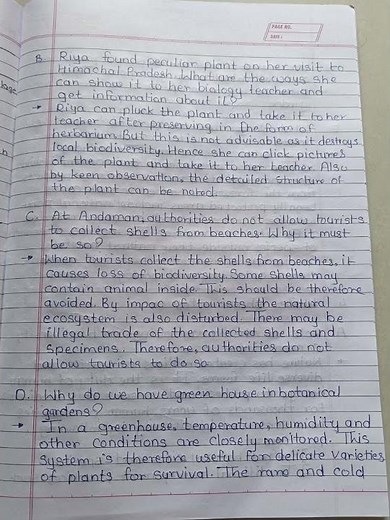 PAGE NO.
DATE:
B. Riya found peculiar plant on her visit to
Himachal Pradesh. What are the ways she
can show it to her biology teacher and
get information about it?
→ Riya can pluck the plant and take it to her
teacher after preserving in the form of
herbarium. But this is not advisable as it destroys
local biodiversity. Hence she can click pictures
of the plant and take it to her teacher. Also
by keen observation, the detailed structure of
the plant can be noted.
C. At Andaman, authorities do not allow tourists
to collect shells from beaches. Why it must
be so?
→ When tourists collect the shells from beaches, it
causes loss of biodiversity. Some shells may
contain animal inside. This should be therefore
avoided. By impac of tourists the natural
ecosystem is also disturbed. There may be
illegal trade of the collected shells and
specimens. Therefore, authorities do not
allow tourists to do so.
D. Why do we have green house in botanical
gardens?
→ In a greenhouse, temperature, humidity and
other conditions are closely monitored. This
system is therefore useful for delicate varieties
of plants for survival. The rare and cold